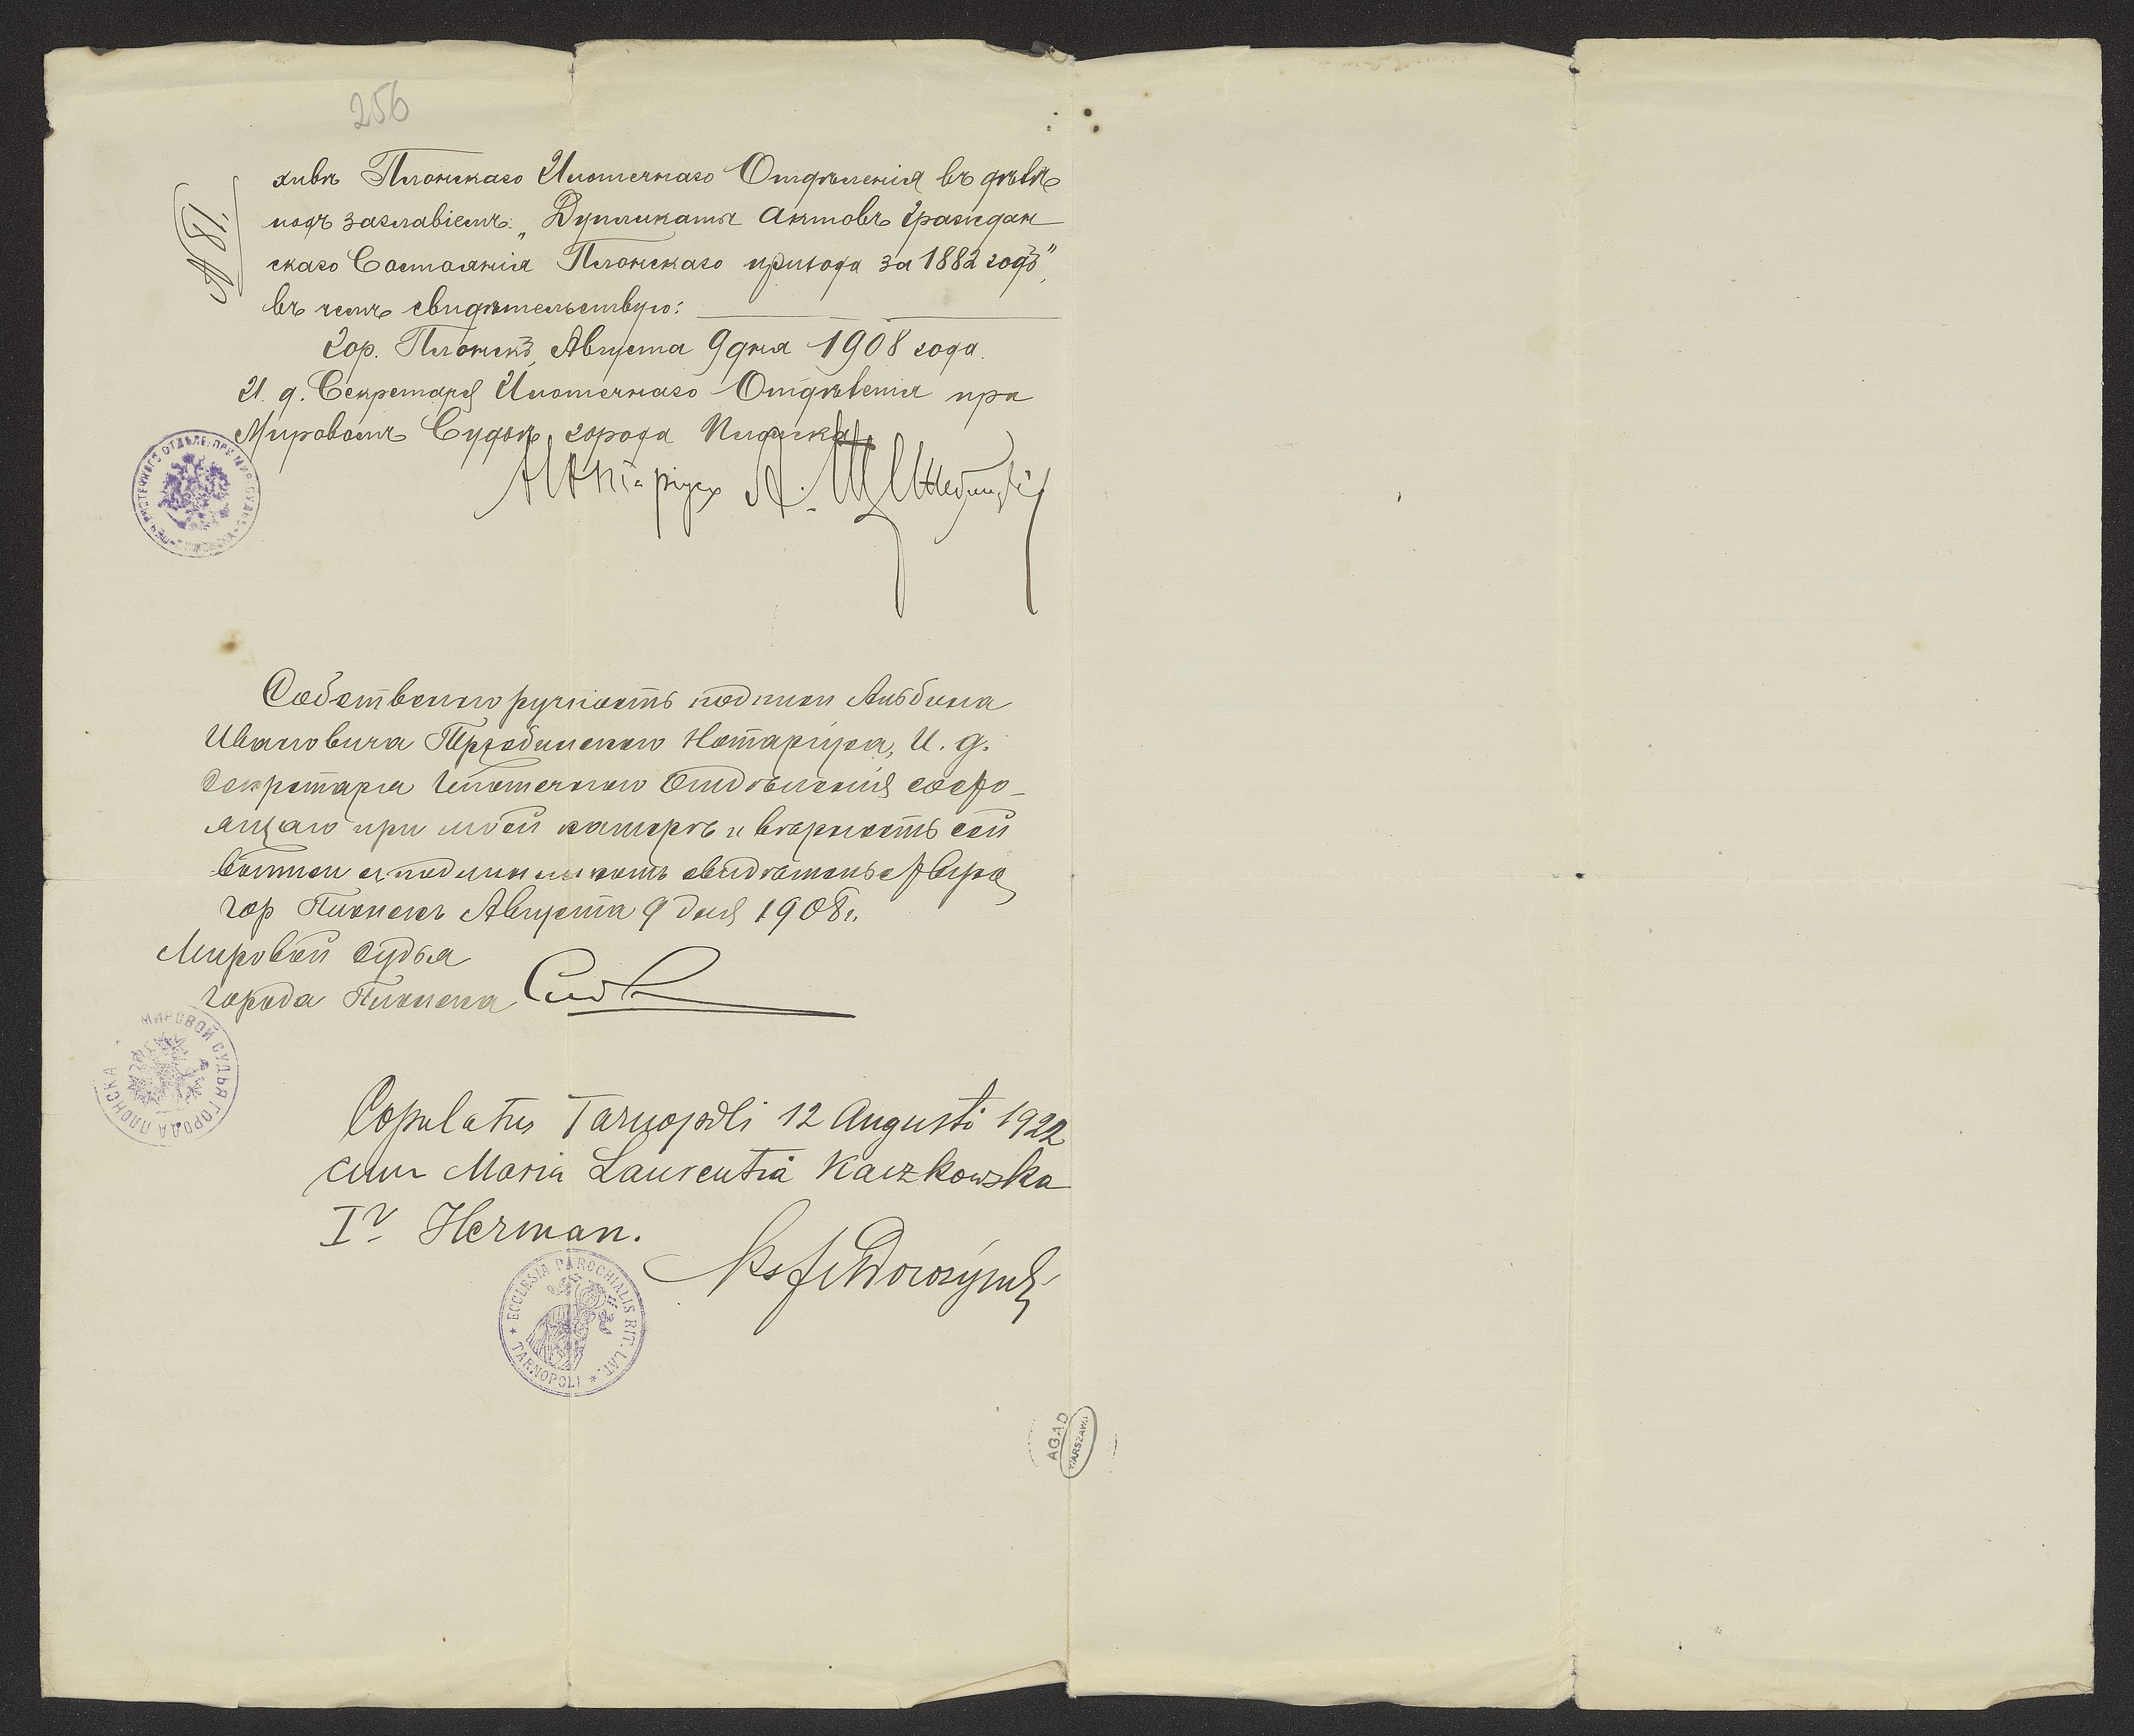 256
№ 81.
хивѣ Плонскаго Ипотечнаго Отдѣленія въ дѣлѣ
подъ заглавіемъ: „Дупликаты Актовъ Граждан
скаго Состоянія Плонскаго прихода за 1882 годъ",
въ чемъ свидѣтельствую:
Гор. Плонскъ, Августа 9 дня 1908 года.
И. д. Секретаря Ипотечнаго Отдѣленія при
Мировомъ Судьѣ города Плонска
Нотаріусъ А.
Собственноручность подписи Альбина
Ивановича Нотаріуса, И. д.
Секретаря Ипотечнаго Отдѣленія состо-
ящаго при моей камерѣ и вѣрность сей
свидѣтельствую
гор Плонскъ Августа 9 дня 1908 г.
Мировой Судья
города Плонска
МИРОВОЙ СУДЬЯ ГОРОДА ПЛОНСКА
Copulatus Tarnopoli 12 Augusti 1922
cum Maria Laurentia Kaczkowska
I v Herman.
Ks
ECCLESIA PAROCHIALIS RIT. LAT.
TARNOPOLI
AGAD
WARSZAWA